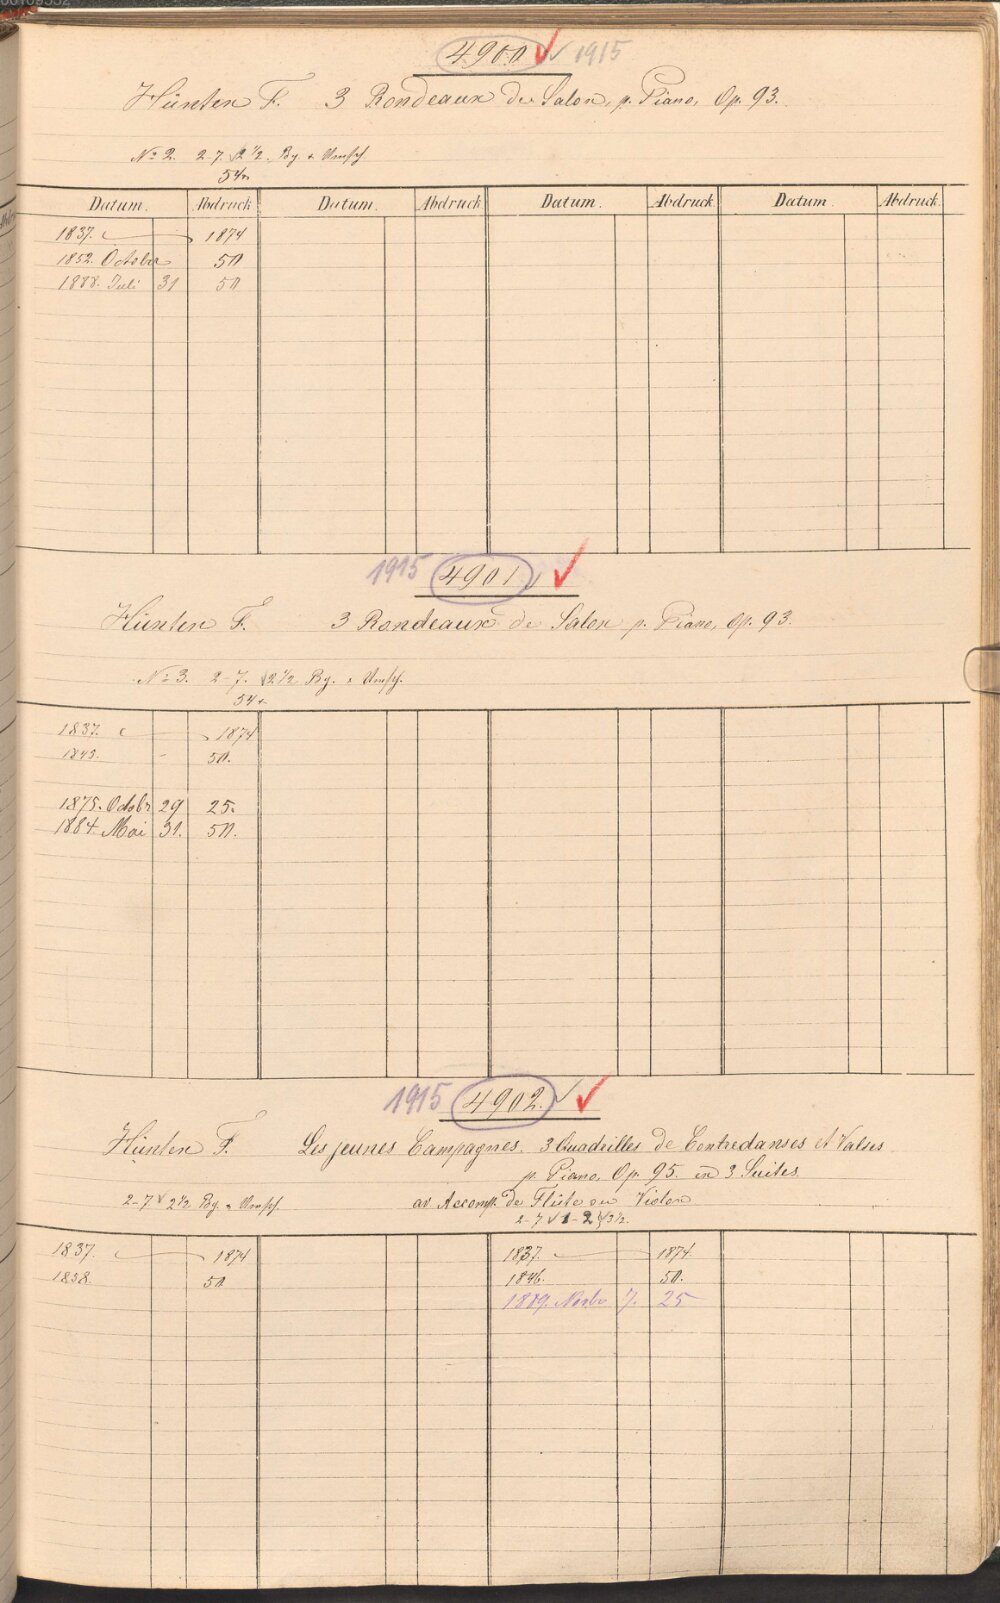 4900 1915
Hünten F. 3 Rondeaux de Salon, p. Piano, Op. 93.
No 2. 2-7. 2 1/2 Bg. + Umsch.
54x
Datum. Abdruck Datum. Abdruck Datum. Abdruck Datum. Abdruck.
1837. 1874
1852. October 50
1888. Juli 31 50
1915 4901
Hünten F. 3 Rondeaux de Salon p. Piano, Op. 93.
No 3. 2-7. 2 1/2 Bg. + Umsch.
54x
1837. 1874
1845. - 50.
1875. Octobr 29 25.
1884. Mai 31. 50.
1915 4902.
Hünten F. Les jeunes Campagnes. 3 Quadrilles de Contredanses et Valses
p. Piano, Op. 95. in 3 Suites
2-7 2 1/2 Bg. + Umsch. av Accomp. de Flûte ou Violon
2-7 1-2 3 1/2.
1837. 1874 1837. 1874
1858. 50 1846. 50.
1889. Novbr 7. 25